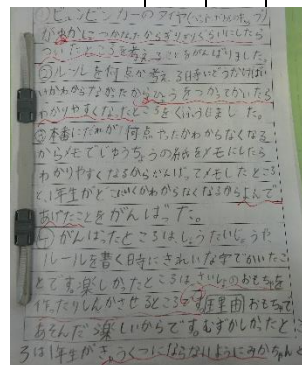 ①ピュンピンカーのアイヤ(
がゆかにつかなかたからぎりぎりくらいにしたら
ついたところを考えることをがんばりました。
②ルールを何点か考え、3日まいでうがければい
いかわからなかたからひょうをつくてかいたら
わかりやすくなたところをくふうしました。
③本番にだれが何点やったかわからなくなる
からメモでじゅうちょうの紙をメモにしたら
わかりやすくなるからがんばってメモしたところ
と、1年生がどこにいくかわからなくなるからよんで
あげたことをがんばった。
④がんばったところはしょうたいじょうや
ルールを書く時にきれいな字でかいたこ
とです。楽しかったところは、さいしょのおもちゃを
作ったりしんかさせるところです。理由おもちゃで
あそんだら楽しいからです。むずかしかったとこ
ろは1年生がきゅうくつにならないようにみかちゃんと